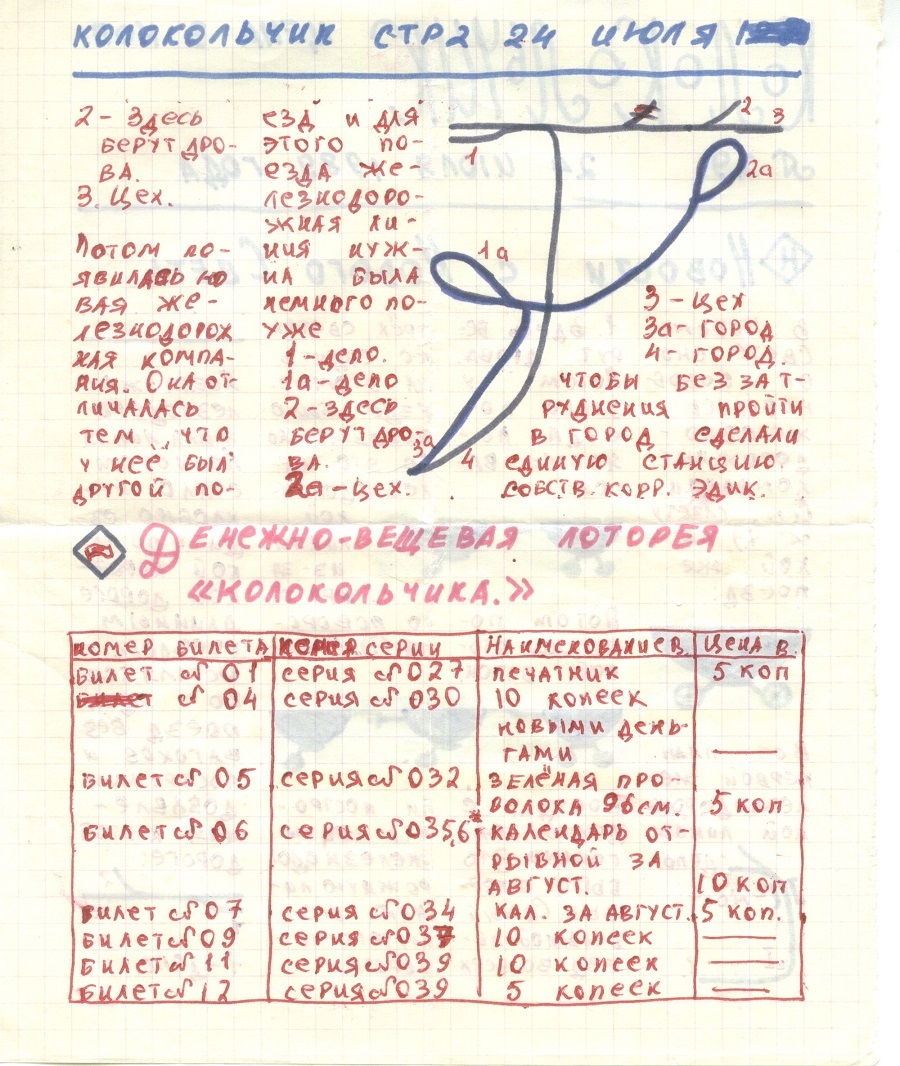 КОЛОКОЛЬЧИК СТР2 24 ИЮЛЯ
2 - Здесь
БЕРУТ ДРО-
ВА.
3. Цех.
Потом по-
явилась но
вая же-
лезнодорож
ная компа-
ния. Она от-
личалась
тем, что
у неё был
другой по-
езд и для
этого по-
езда же-
лезнодоро-
жная ли-
ния нуж-
на была
немного по-
уже
1-депо.
1а-депо
2-здесь
берут дро-
ва.
2а-цех.
1
2
3
2а
1а
3а
4
3 - цех
3а-город
4-город.
чтобы без зат-
руднения пройти
в город сделали
единую станцию.
собств. корр. Эдик.
Денежно-вещевая лоторея
«Колокольчика.»
номер билета номер серии Наименование в. Цена в.
Билет № 01 серия № 027 печатник 5 коп
Билет № 04 серия № 030 10 копеек
новыми день-
гами ——
Билет № 05 серия № 032 зелёная про-
волока 96 см. 5 коп
Билет № 06 серия № 035,6* календарь от-
рывной за
август. 10 коп
Билет № 07 серия № 034 кал. за август. 5 коп.
Билет № 09 серия № 037 10 копеек ——
Билет № 11 серия № 039 10 копеек ——
Билет № 12 серия № 039 5 копеек ——